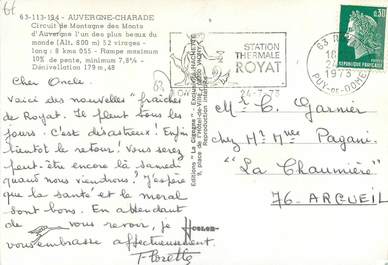 63-113-194 - AUVERGNE-CHARADE
Circuit de Montagne des Monts
d'Auvergne l'un des plus beaux du
monde (Alt. 800 m) 52 virages -
long : 8 kms 055 - Rampe maximum
10% de pente, minimum 7,8% -
Dénivellation 179 m,48
Cher Oncle.
Voici des nouvelles "fraîches"
de Royat. Il pleut tous les
jours. C'est désastreux! Enfin
bientôt le retour! Vous serez
peut-être encore là samedi
quand nous viendrons? J'espère
que la santé et le moral
sont bons. En attendant
de vous revoir, je
vous embrasse affectueusement.
Florette
Editions "La Cigogne"
9, place de l'Hôtel-de-Ville
Reproduction interdite
STATION
THERMALE
ROYAT
63
24-7
1973
PUY-DE-DÔME
24-7-73
0.30
Mr C. Garnier
chez Mr Mme Pagani
"La Chaumière"
76. ARCUEIL